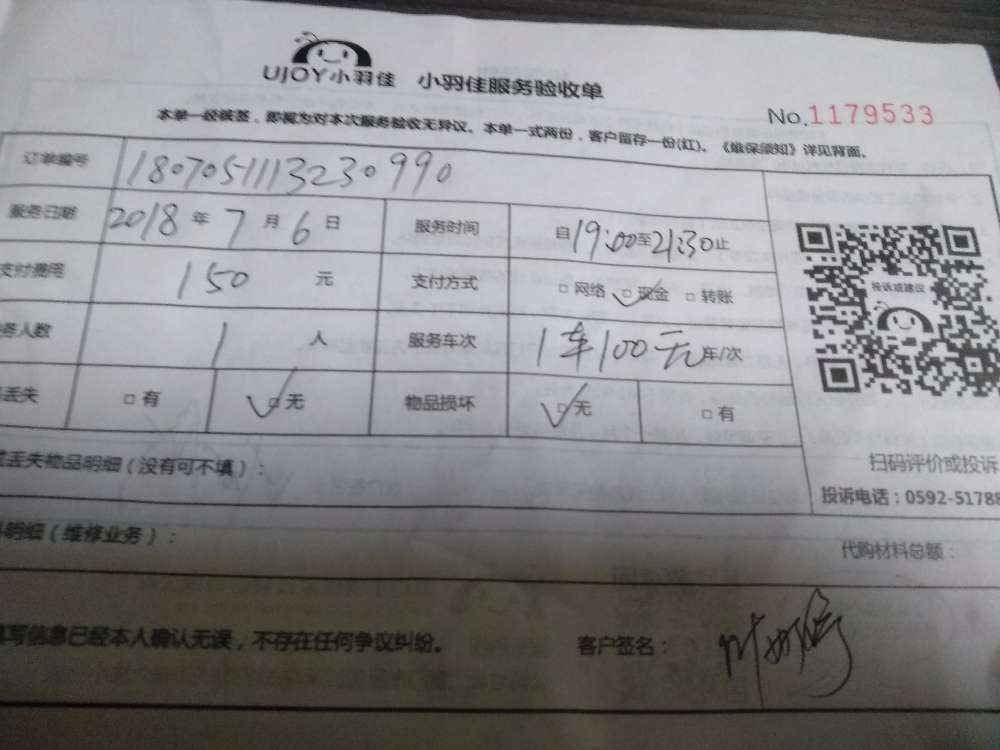 UJOY小羽佳 小羽佳服务验收单
No.1179533
本单一经核签，即视为对本次服务验收无异议。本单一式两份，客户留存一份(红)。《维保须知》详见背面。
订单编号 1807051113230990
服务日期 2018年7月6日 服务时间 自19:00至21:30止
支付费用 150元 支付方式 □网络 ☑现金 □转账
务人数 1人 服务车次 1车100元车/次
丢失 □有 ☑无 物品损坏 ☑无 □有
投诉或建议
扫码评价或投诉
投诉电话：0592-51788
丢失物品明细（没有可不填）：
明细（维修业务）： 代购材料总额：
写信息已经本人确认无误，不存在任何争议纠纷。 客户签名：